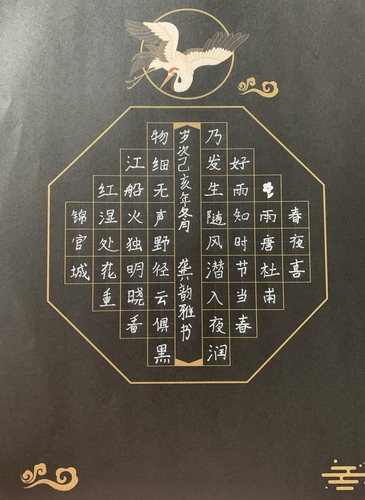 春夜喜
雨唐杜甫
好雨知时节当春
乃发生随风潜入夜润
岁次己亥年冬月 龚韵雅书
物细无声野径云俱黑
江船火独明晓看
红湿处花重
锦官城